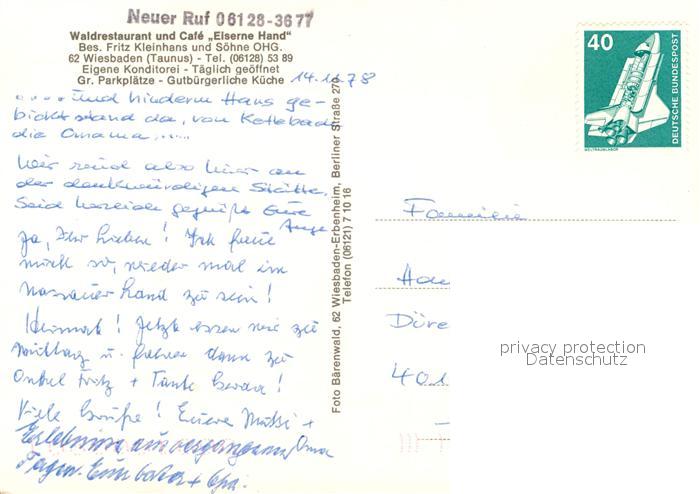 Neuer Ruf 06128-3677
Waldrestaurant und Café „Eiserne Hand"
Bes. Fritz Kleinhans und Söhne OHG.
62 Wiesbaden (Taunus) - Tel. (06128) 53 89
Eigene Konditorei - Täglich geöffnet
Gr. Parkplätze - Gutbürgerliche Küche
14.11.78
.... und hinderm Haus ge-
stand da, von
die Omama, .....
Wir sind also hier an
der denkwürdigen Stätte.
Seid herzlich gegrüßt Eure
Ja, Ihr Lieben! Ich freue
mich so, wieder mal im
Nassauer Land zu sein!
Heimat! Jetzt essen wir zu
Mittag u. fahren dann zu
Onkel Fritz + Tante
Viele Grüße! Euere Mutti +
Oma
Erlebnisse aus vergangenen
Tagen. Euer Vater + Opa.
Foto Bärenwald, 62 Wiesbaden-Erbenheim, Berliner Straße 27
Telefon (06121) 7 10 16
40
DEUTSCHE BUNDESPOST
WELTRAUMLABOR
Familie
Düre
401
privacy protection
Datenschutz